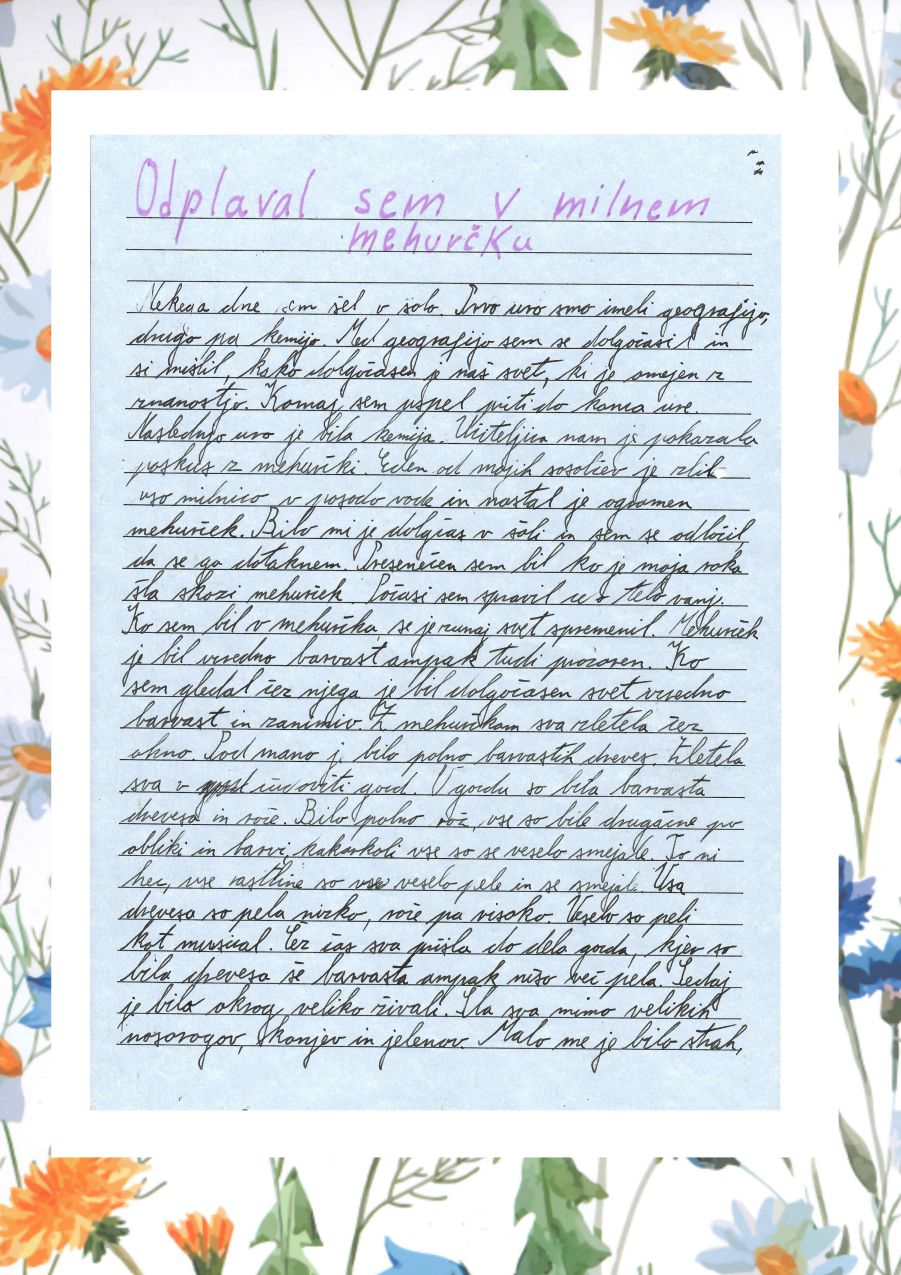 Odplaval sem v milnem
mehurčku
Nekega dne sem šel v šolo. Prvo uro smo imeli geografijo,
drugo pa kemijo. Med geografijo sem se dolgočasil in
si mislil, kako dolgočasen je naš svet, ki je omejen z
znanostjo. Komaj sem uspel priti do konca ure.
Naslednjo uro je bila kemija. Učiteljica nam je pokazala
poskus z mehurčki. Eden od mojih sošolcev je zlil
vso milnico v posodo vode in nastal je ogromen
mehurček. Bilo mi je dolgčas v šoli in sem se odločil,
da se ga dotaknem. Presenečen sem bil ko je moja roka
šla skozi mehurček. Počasi sem spravil vse telo vanj.
Ko sem bil v mehurčku, se je zunaj svet spremenil. Mehurček
je bil vzredno barvast ampak tudi prozoren. Ko
sem gledal čez njega je bil dolgočasen svet vzredno
barvast in zanimiv. Z mehurčkom sva zletela čez
okno. Pod mano je bilo polno barvastih dreves. Zletela
sva v čudoviti gozd. V gozdu so bila barvasta
drevesa in rože. Bilo polno rož, vse so bile drugačne po
obliki in barvi, kakorkoli vse so se veselo smejale. To ni
hec, vse rastline so vse veselo pele in se smejale. Vsa
drevesa so pela nizko, rože pa visoko. Veselo so peli
kot musical. Čez čas sva prišla do dela gozda, kjer so
bila drevesa še barvasta ampak niso več pela. Sedaj
je bilo okrog veliko živali. Šla sva mimo velikih
nosorogov, konjev in jelenov. Malo me je bilo strah,